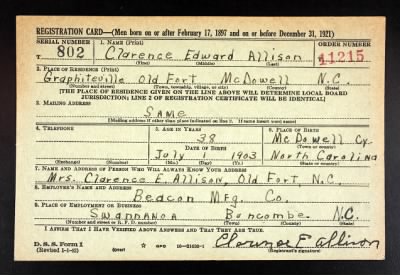 REGISTRATION CARD—(Men born on or after February 17, 1897 and on or before December 31, 1921)
SERIAL NUMBER 1. NAME (Print) ORDER NUMBER
T 802 Clarence Edward Allison T 11215
(First) (Middle) (Last)
2. PLACE OF RESIDENCE (Print)
Graphiteville Old Fort McDowell N.C.
(Number and street) (Town, township, village, or city) (County) (State)
[THE PLACE OF RESIDENCE GIVEN ON THE LINE ABOVE WILL DETERMINE LOCAL BOARD
JURISDICTION; LINE 2 OF REGISTRATION CERTIFICATE WILL BE IDENTICAL]
3. MAILING ADDRESS
Same
[Mailing address if other than place indicated on line 2. If same insert word same]
4. TELEPHONE 5. AGE IN YEARS 6. PLACE OF BIRTH
38 McDowell Cy.
DATE OF BIRTH (Town or county)
July 1903 North Carolina
(Exchange) (Number) (Mo.) (Day) (Yr.) (State or country)
7. NAME AND ADDRESS OF PERSON WHO WILL ALWAYS KNOW YOUR ADDRESS
Mrs. Clarence E. Allison, Old Fort, N.C.
8. EMPLOYER'S NAME AND ADDRESS
Beacon Mfg. Co.
9. PLACE OF EMPLOYMENT OR BUSINESS
Swannanoa Buncombe N.C.
(Number and street or R. F. D. number) (Town) (County) (State)
I AFFIRM THAT I HAVE VERIFIED ABOVE ANSWERS AND THAT THEY ARE TRUE.
D. S. S. Form 1 (over) GPO 16—21630-1 Clarence E Allison
(Revised 1-1-42) (Registrant's signature)